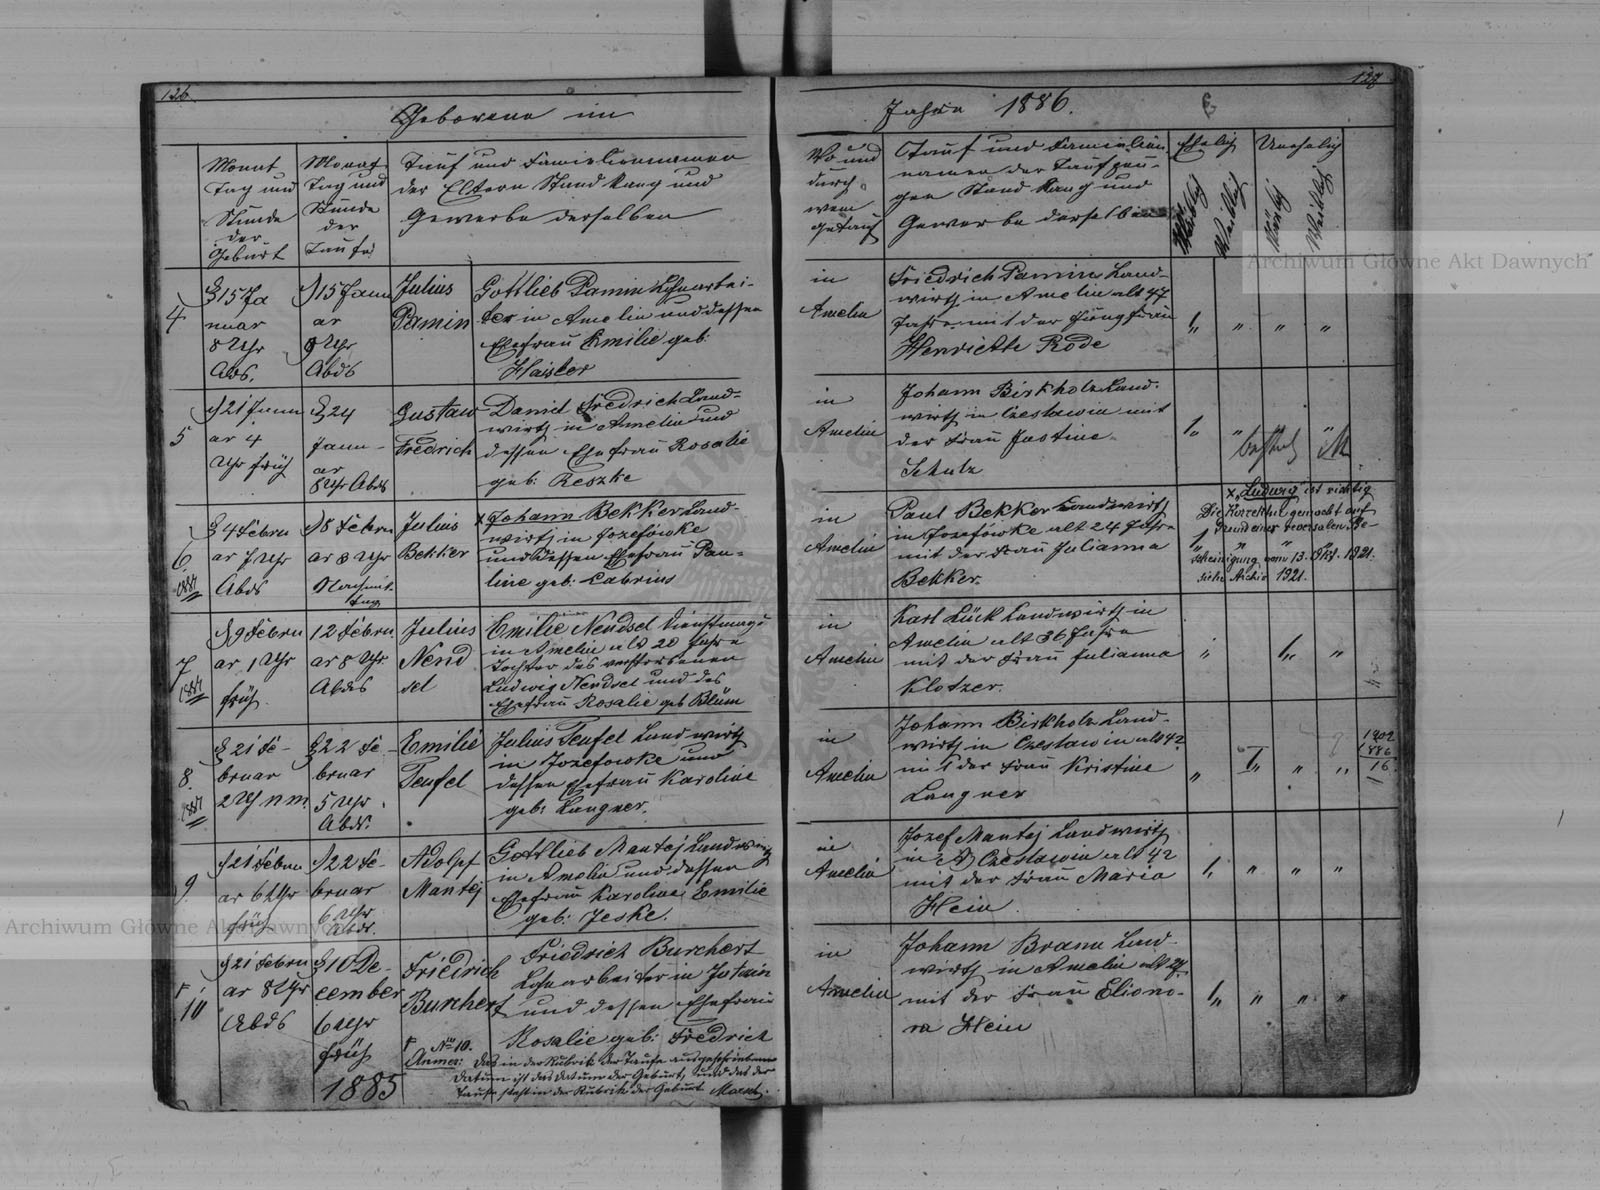 126.
Geborene im
Monat
Tag und
Stunde
der
Geburt
Monat
Tag und
Stunde
der
Taufe
Tauf und Familiennamen
der Eltern Stand Rang und
Gewerbe derselben
4
15 Ja
nuar
8 Uhr
Abds.
15 Janu
ar
9 Uhr
Abds
Julius
Pamin
Gottlieb Pamin Lohnarbei-
ter in Amelin und dessen
Ehefrau Emilie geb:
Haisler
5
21 Janu
ar 4
Uhr früh
24
Janu-
ar
8 Uhr Abds
Gustaw
Fredrich
Daniel Fredrich Land-
wirth in Amelin und
dessen Ehefrau Rosalie
geb: Reszke
6
1887
4 Februar
ar 7 Uhr
Abds
8 Februar
ar 3 Uhr
Nachmit-
tag
Julius
Bekker
x Johann Bekker Land-
wirth in Jozefowke
und dessen Ehefrau Pau-
line geb: Cabrius
7
1887
9 Febru
ar 1 Uhr
früh.
12 Febru
ar 8 Uhr
Abds
Julius
Nend
sel
Emilie Nendsel Dienstmagd
in Amelin alt 20 Jahre
Tochter des verstorbenen
Ludwig Nendsel und des
Ehefrau Rosalie geb Blüm
8.
1887
21 Fe-
bruar
2 Uh n m.
22 Fe-
bruar
5 Uhr
Abds.
Emilie
Teufel
Julius Teufel Landwirth
in Jozefowke und
dessen Ehefrau Karoline
geb: Langner.
9.
21 Febru
ar 6 Uhr
früh
22 Fe-
bruar
6 Uhr
Abds.
Adolf
Mantej
Gottlieb Mantej Landwirth
in Amelin und dessen
Ehefrau Karoline Emilie
geb: Jeske.
10
21 Febru
ar 8 Uhr
Abds
10 De-
cember
6 Uhr
früh
1885
Friedrich
Burchert
Friedrich Burchert
Lohnarbeiter in Justzin
und dessen Ehefrau
Rosalie geb: Fredrich
No 10.
Anmer: Das in der Rubrik der Taufe ausgeschriebene
Datum ist das Datum der Geburt, und das der
Taufe steht in der Rubrik der Geburt
127
Jahre 1886.
Wo und
durch
wem
getauft
Tauf und Familien
namen der Taufzeu-
gen Stand Rang und
Gewerbe derselben
Ehelig
Unehelig
Mänlig
Weiblig
Mänlig
Weiblig
in
Amelin
Friedrich Pamin Land-
wirth in Amelin alt 47
Jahre mit der Jungfrau
Henriette Rode
1„ „ „ „
in
Amelin
Johann Birkholz Land-
wirth in Czeslawin mit
der Frau Justine
Schulz
1„ „ „
in
Amelin
Paul Bekker Landwirth
in Jozefówke alt 24 Jahre
mit der Frau Julianna
Bekker.
x „Ludwig" ist richtig
Die Korrektur gemacht auf
Grund einer reversalen Be-
scheinigung vom 13. Okt. 1921.
siehe Archiv 1921.
in
Amelin
Karl Lück Landwirth in
Amelin alt 36 Jahre
mit der Frau Julianna
Klotzer.
„ 1„ „
in
Amelin
Johann Birkholz Land-
wirth in Czeslawin alt 42
mit der Frau Kristine
Langner
„ 1„ „ „
1902
1886
16.
in
Amelin
Jozef Mantej Landwirth
in Czeslawin alt 42
mit der Frau Maria
Hein
1„ „ „ „
in
Amelin
Johann Brann Land-
wirth in Amelin alt 27
mit der Frau Eliono-
ra Hein
1„ „ „ „
Archiwum Główne Akt Dawnych
Archiwum Główne Akt Dawnych